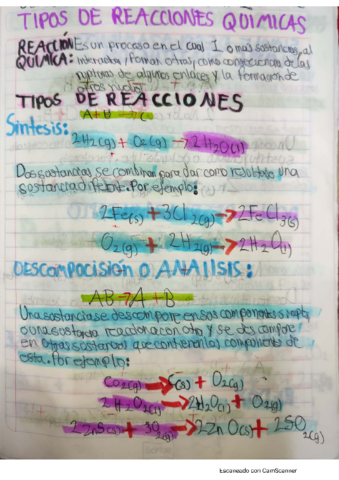 TIPOS DE REACCIONES QUIMICAS
REACCIÓN Es un proceso en el cual 1 o más sustancias, al
QUÍMICA: interactuar forman otras, como consecuencia de las
rupturas de algunos enlaces y la formación de
otros
TIPOS DE REACCIONES
A + B → C
Síntesis:
2H₂(g) + O₂(g) → 2H₂O(l)
Dos sustancias se combinan para dar como resultado una
sustancia diferente. Por ejemplo:
2Fe(s) + 3Cl₂(g) → 2FeCl₃(s)
O₂(g) + 2H₂(g) → 2H₂O(l)
DESCOMPOCISIÓN O ANALISIS:
AB → A + B
Una sustancia se descompone en sus componentes
o una sustancia reacciona con otra y se descompone
en otras sustancias que contienen los componentes de
esta. Por ejemplo:
CO₂(g) → C(s) + O₂(g)
2H₂O₂(l) → 2H₂O(l) + O₂(g)
2ZnS(s) + 3O₂(g) → 2ZnO(s) + 2SO₂(g)
Escaneado con CamScanner